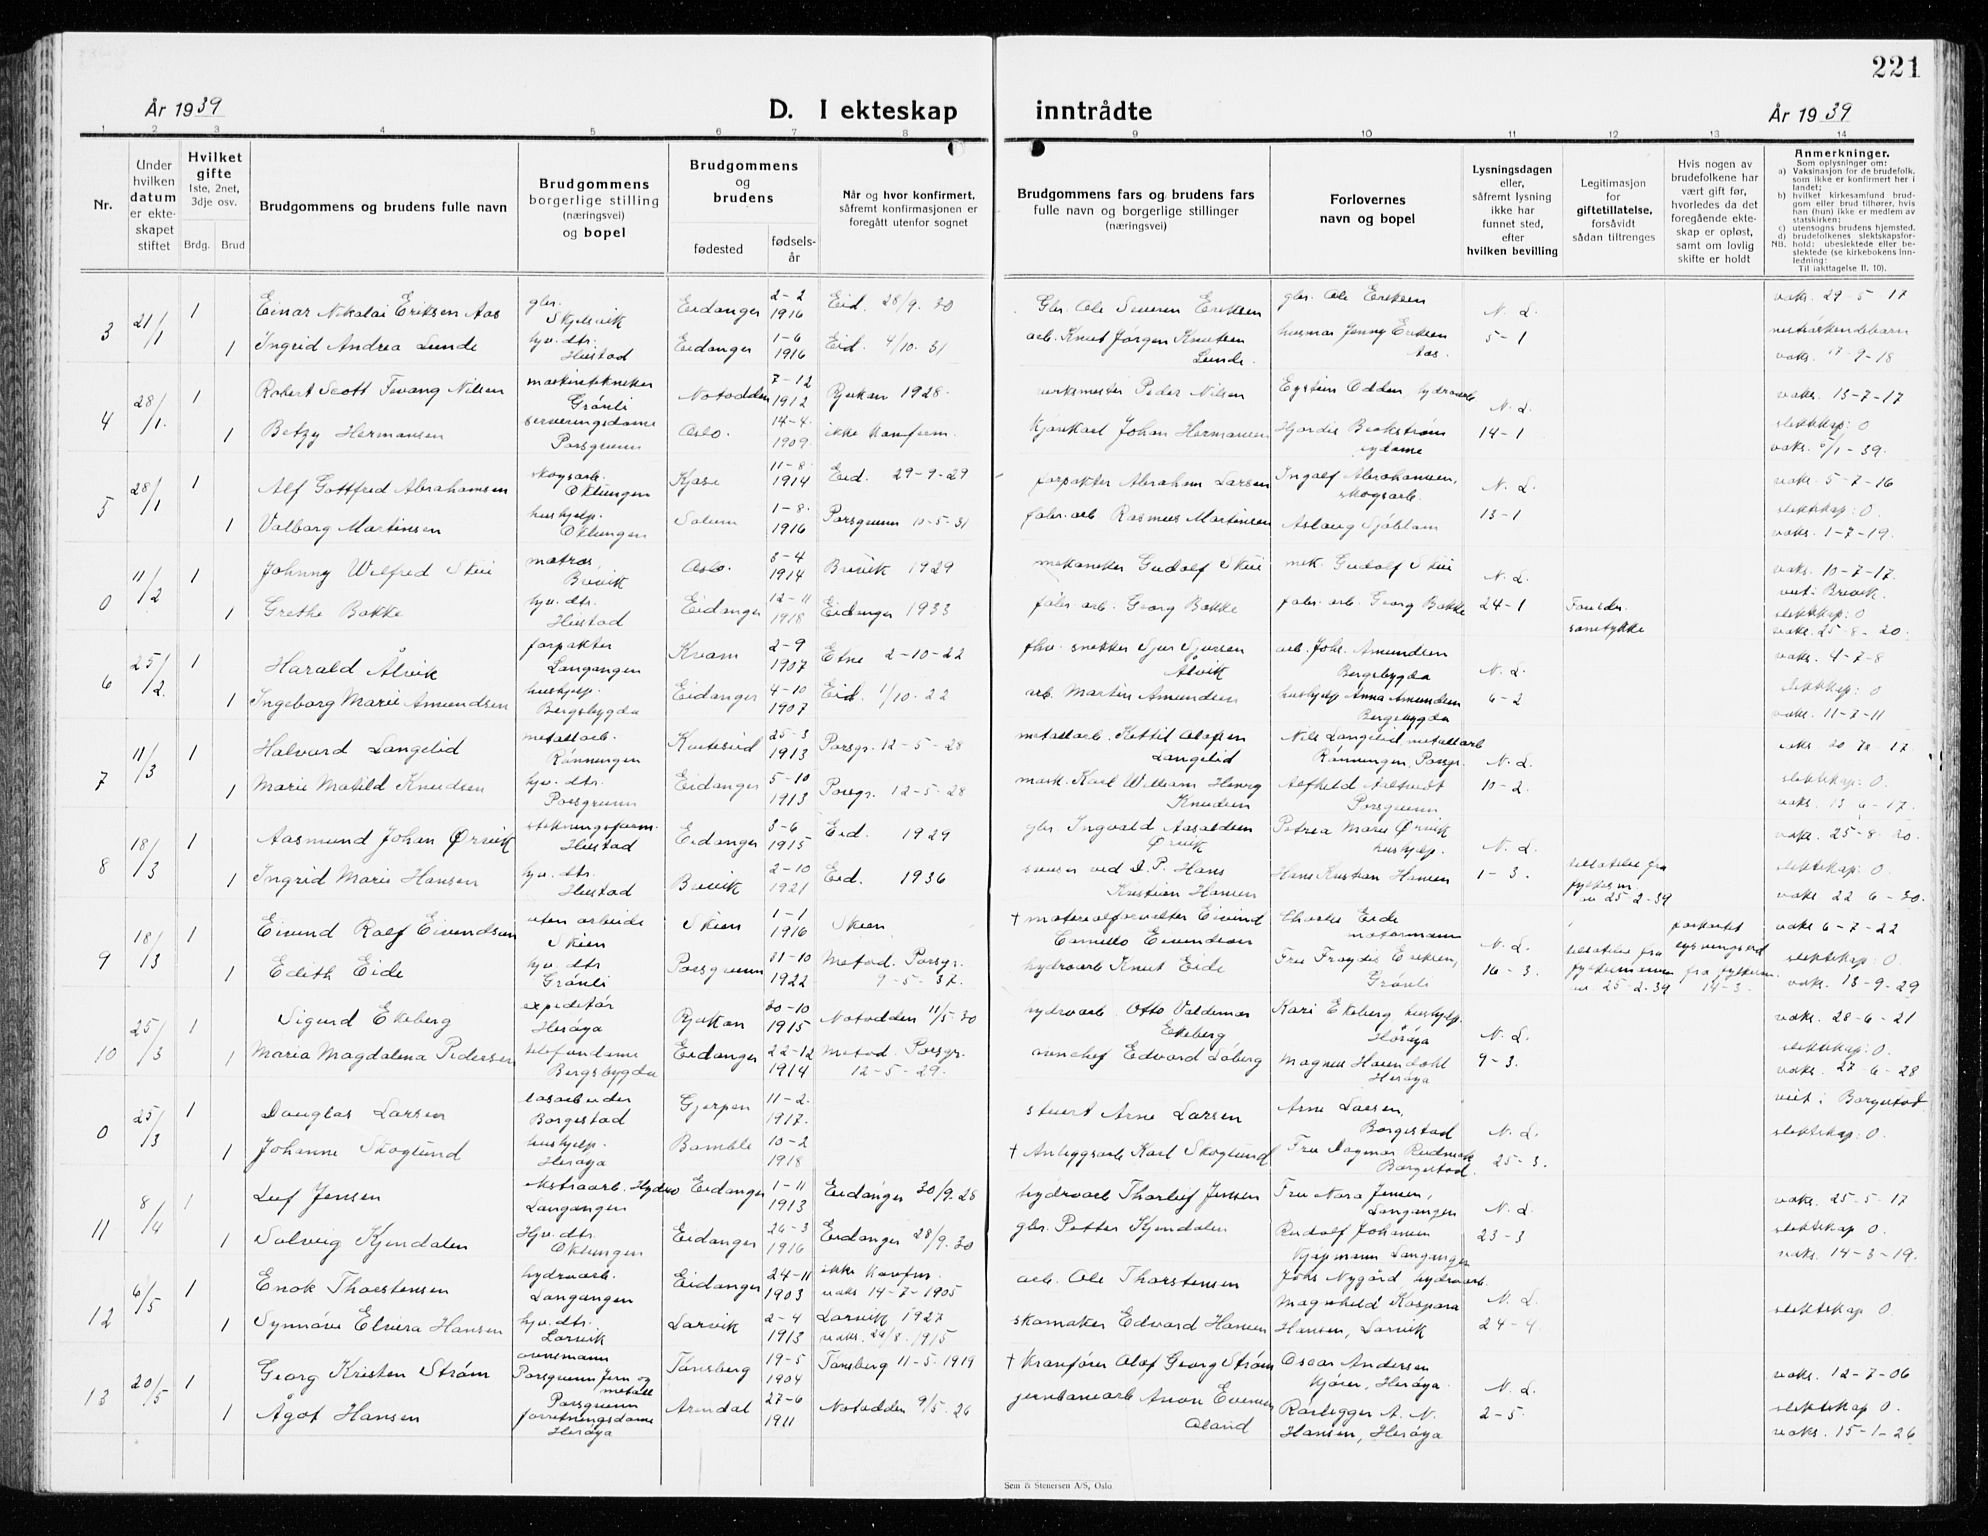 221
År 1939
D. I ekteskap inntrådte
År 1939
1 2 3 4 5 6 7 8 9 10 11 12 13 14
Nr.
Under hvilken datum er ekteskapet stiftet
Hvilket gifte 1ste, 2net, 3dje osv.
Brdg. Brud
Brudgommens og brudens fulle navn
Brudgommens borgerlige stilling (næringsvei) og bopel
Brudgommens og brudens
fødested
fødselsår
Når og hvor konfirmert, såfremt konfirmasjonen er foregått utenfor sognet
Brudgommens fars og brudens fars fulle navn og borgerlige stillinger (næringsvei)
Forlovernes navn og bopel
Lysningsdagen eller, såfremt lysning ikke har funnet sted, efter hvilken bevilling
Legitimasjon for giftetillatelse, forsåvidt sådan tiltrenges
Hvis nogen av brudefolkene har vært gift før, hvorledes da det foregående ekteskap er opløst, samt om lovlig skifte er holdt
Anmerkninger.
Som oplysninger om:
a) Vaksinasjon for de brudefolk, som ikke er konfirmert her i landet;
b) hvilket kirkesamfund brudgom eller brud tilhører, hvis han (hun) ikke er medlem av statskirken;
c) utensogns brudens hjemsted.
d) brudefolkenes slektskapsforhold: ubeslektede eller beslektede (se kirkebokens innledning: Til iakttagelse II. 10).
NB.
3 21/1 1 Einar Nikolai Eriksen Aas gbr. Skjelsvik Eidanger 2-2 1916 Eid. 28/9. 30 Gbr. Ole Severin Eriksen gbr. Ole Eriksen N. L. 5-1 vaks. 29-5-17
1 Ingrid Andrea Lunde hjv. dtr. Heistad Eidanger 1-6 1916 Eid. 4/10. 31 arb. Knut Jørgen Knutsen Lunde husmor Jenny Eriksen Aas vaks. 17-9-18
4 28/1 1 Robert Scott Tevang Nilsen maskintekniker Grönli Notodden 7-12 1912 Rjukan 1928. verksmester Peder Nilsen Eystein Odden, hydroarb N. L. 14-1 vaks. 13-7-17 slektskp: 0
1 Betzy Hermansen serveringsdame Porsgrunn Oslo. 14-4 1909 ikke konferm. Kjørekarl Johan Hermansen Hjördis Beckström sydame vaks. 5/1-39.
5 28/1 1 Alf Gottfred Abrahamsen skogsarb. Oklungen Kjose 11-8 1914 Eid. 29-9-29 forpakter Abraham Larsen Ingolf Abrahamsen, skogsarb. N. L. 13-1 vaks. 5-7-16 slektskap: 0.
1 Valborg Martinsen hushjelp. Oklungen Solum 1-8 1916 Porsgrunn 10-5-31 fabr. arb. Rasmus Martinsen Aslaug Sjöblom vaks. 1-7-19.
0 11/2 1 Johnny Wilfred Skui matros, Brevik Oslo. 3-4 1914 Brevik 1929 mekaniker Gudolf Skui mek. Gudolf Skui N. L. 24-1 vaks. 10-7-17. viet i Brevik.
1 Grethe Bakke hjv. dtr. Heistad Eidanger 12-11 1918 Eidanger 1933 fabr. arb. Georg Bakke fabr. arb. Georg Bakke slektskap: 0 vaks. 25-8-20.
6 25/2. 1 Harald Ålvik forpakter Langangen Kvam 2-9 1907 Etne 2-10-22 fhv. snekker Sjur Sjursen Ålvik arb. Johs. Amundsen Bergsbygda N. L. 6-2 vaks. 4-7-8 slektskap: 0
1 Ingeborg Marie Amundsen hushjelp. Bergsbygda Eidanger 4-10 1907 Eid. 1/10. 22 arb. Martin Amundsen hushjelp Anna Amundsen Bergsbygda vaks. 11-7-11
7 11/3 1 Halvard Langelid metallarb. Rönningen 25-3 1913 Porsgr. 12-5-28 metallarb. Kittil Olafsen Langelid Nils Langelid, metallarb Rönningen, Porsgr. N. L. 10-2. slektskap: 0.
1 Marie Matild Knudsen hjv. dtr. Porsgrunn Eidanger 5-10 1913 Porsgr. 12-5-28 mask. Karl William Henry Knudsen Porsgrunn vaks. 13-6-17.
8 18/3 1 Aasmund Johan Ørvik Heistad Eidanger 3-6 1915 Eid. 1929 gbr Ingvald Ørvik Petrea Marie Ørvik hushjelp. N. L. 1-3. vaks. 25-8-20. slektskap: 0
1 Ingrid Marie Hansen hjv. dtr. Heistad Brevik 2-10 1921 Eid. 1936 Hans Kristian Hansen Hans Kristian Hansen tillatelse fra fylkesm. av 25-2-39 vaks 22-6-30.
9 18/3 1 Eivind Rolf Eivindsen uten arbeide Skien Skien 1-1 1916 Skien † materialforvalter Eivind Eivindsen Charles Eide motormann N. L. 16-3. vaks 6-7-22 slektskap: 0.
1 Edith Eide hjv. dtr Grönli Porsgrunn 31-10 1922 Metod. Porsgr. 9-5-37. hydroarb Knut Eide Fru Fröydis Eriksen, Grönli tillatelse fra fylkesmannen av 25-2-39 lysningstid fra fylkesm. 14-3. vaks. 13-9-29
10 25/3 1 Sigurd Ekeberg expeditør Herøya Rjukan 30-10 1915 Notodden 11/5-30 hydroarb. Otto Valdemar Ekeberg Kari Ekeberg hushjelp. Herøya N. L. 9-3. vaks. 28-6-21 slektskap: 0.
1 Maria Magdalena Pedersen telefondame Bergsbygda Eidanger 22-12 1914 Metod. Porsgr. 12-5-29. Edvard Søberg Magnus Herøya vaks. 27-6-28
0 25/3 1 Douglas Larsen Borgestad Gjerpen 11-2. 1917. stuert Arne Larsen Arne Larsen, Borgestad N. L. 25-3. viet i Borgestad slektskap: 0.
1 Johanne Skoglund hushjelp. Herøya Bamble 10-2 1918 † Anleggsarb Karl Skoglund Fru Dagmar Borgestad.
11 8/4 1 Leif Jensen ekstraarb. Hydro Langangen Eidanger 1-11 1913 Eidanger 30/9. 28 hydroarb Thorleif Jensen Fru Nora Jensen, Langangen N. L. 23-3 vaks. 25-5-17 slektskap 0.
1 Solveig Kjendalen Hjv. dtr. Oklungen Eidanger 26-3 1916 Eidanger 28/9. 30 gbr. Petter Kjendalen Rudolf Johansen Kjøpmann Langangen vaks. 14-3-19.
12 6/5 1 Enok Thorstensen hydroarb. Langangen Eidanger 24-11 1903 ikke konfir. vaks 14-7-1905 arb. Ole Thorstensen Johs Nygård hydroarb. N. L. 24-4. slektskap 0
1 Synnöve Elvira Hansen hjv. dtr. Larvik Larvik 2-4 1913 Larvik 1927 vaks. 29/8. 1915 skomaker Edvard Hansen Magnhild Kaspara Hansen, Larvik
13 20/5 1 Georg Kristen Strøm ovnsmann Porsgrunn Jern og metall Porsgrunn Tønsberg 19-5 1904 Tønsberg 11-5-1919 † Kranfører Olaf Georg Strøm Oscar Andersen Kjører, Herøya. N. L. 2-5. vaks. 12-7-06 slektskap 0.
1 Ågot Hansen forretningsdame Herøya Arendal 27-6 1911 Notodden 9/5. 26 jernbanearb Anon Evensen Oland Rørlegger A. N. Hansen, Herøya vaks. 15-1-26
Sem & Stenersen A/S, Oslo